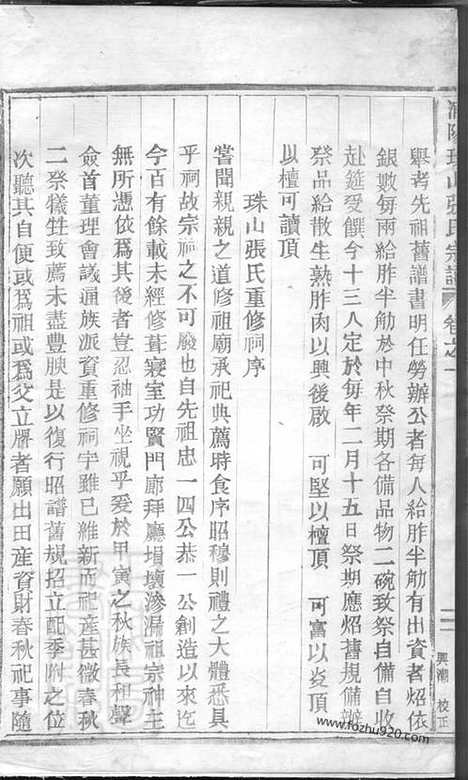 浦陽珠山張氏宗譜 卷之一
舉考先祖舊譜書明任勞辦公者每人給胙半觔有出資者炤依
銀數每兩給胙半觔於中秋祭期各備品物二碗致祭自備自收
赴筵受饌今十三人定於每年二月十五日祭期應炤舊規備辦
祭品給散生熟胙肉以興後啟 可堅以檀頂 可富以炎頂
以檀可讀頂
珠山張氏重修祠序
嘗聞親親之道修祖廟承祀典薦時食序昭穆則禮之大體悉具
乎祠故宗祠之不可廢也自先祖忠一四公恭一公創造以來迄
今百有餘載未經修葺寢室功賢門廊拜廳塌壞滲漏祖宗神主
無所憑依爲其後者豈忍袖手坐視乎爰於甲寅之秋族長和聲
僉首董理會議通族派資重修祠宇雖已維新而祀產甚微春秋
二祭犧牲致薦未盡豐腆是以復行昭譜舊規招立配季附之位
次聽其自便或爲祖或爲父立牌者願出田產資財春秋祀事隨
二
興潮 校正
www.fozhu920.com